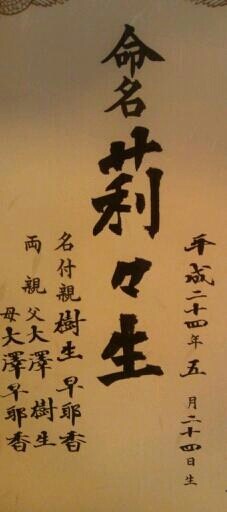 平成二十四年五月二十四日生
命名 莉々生
名付親 樹生 早耶香
両親 父 大澤 樹生
母 大澤 早耶香